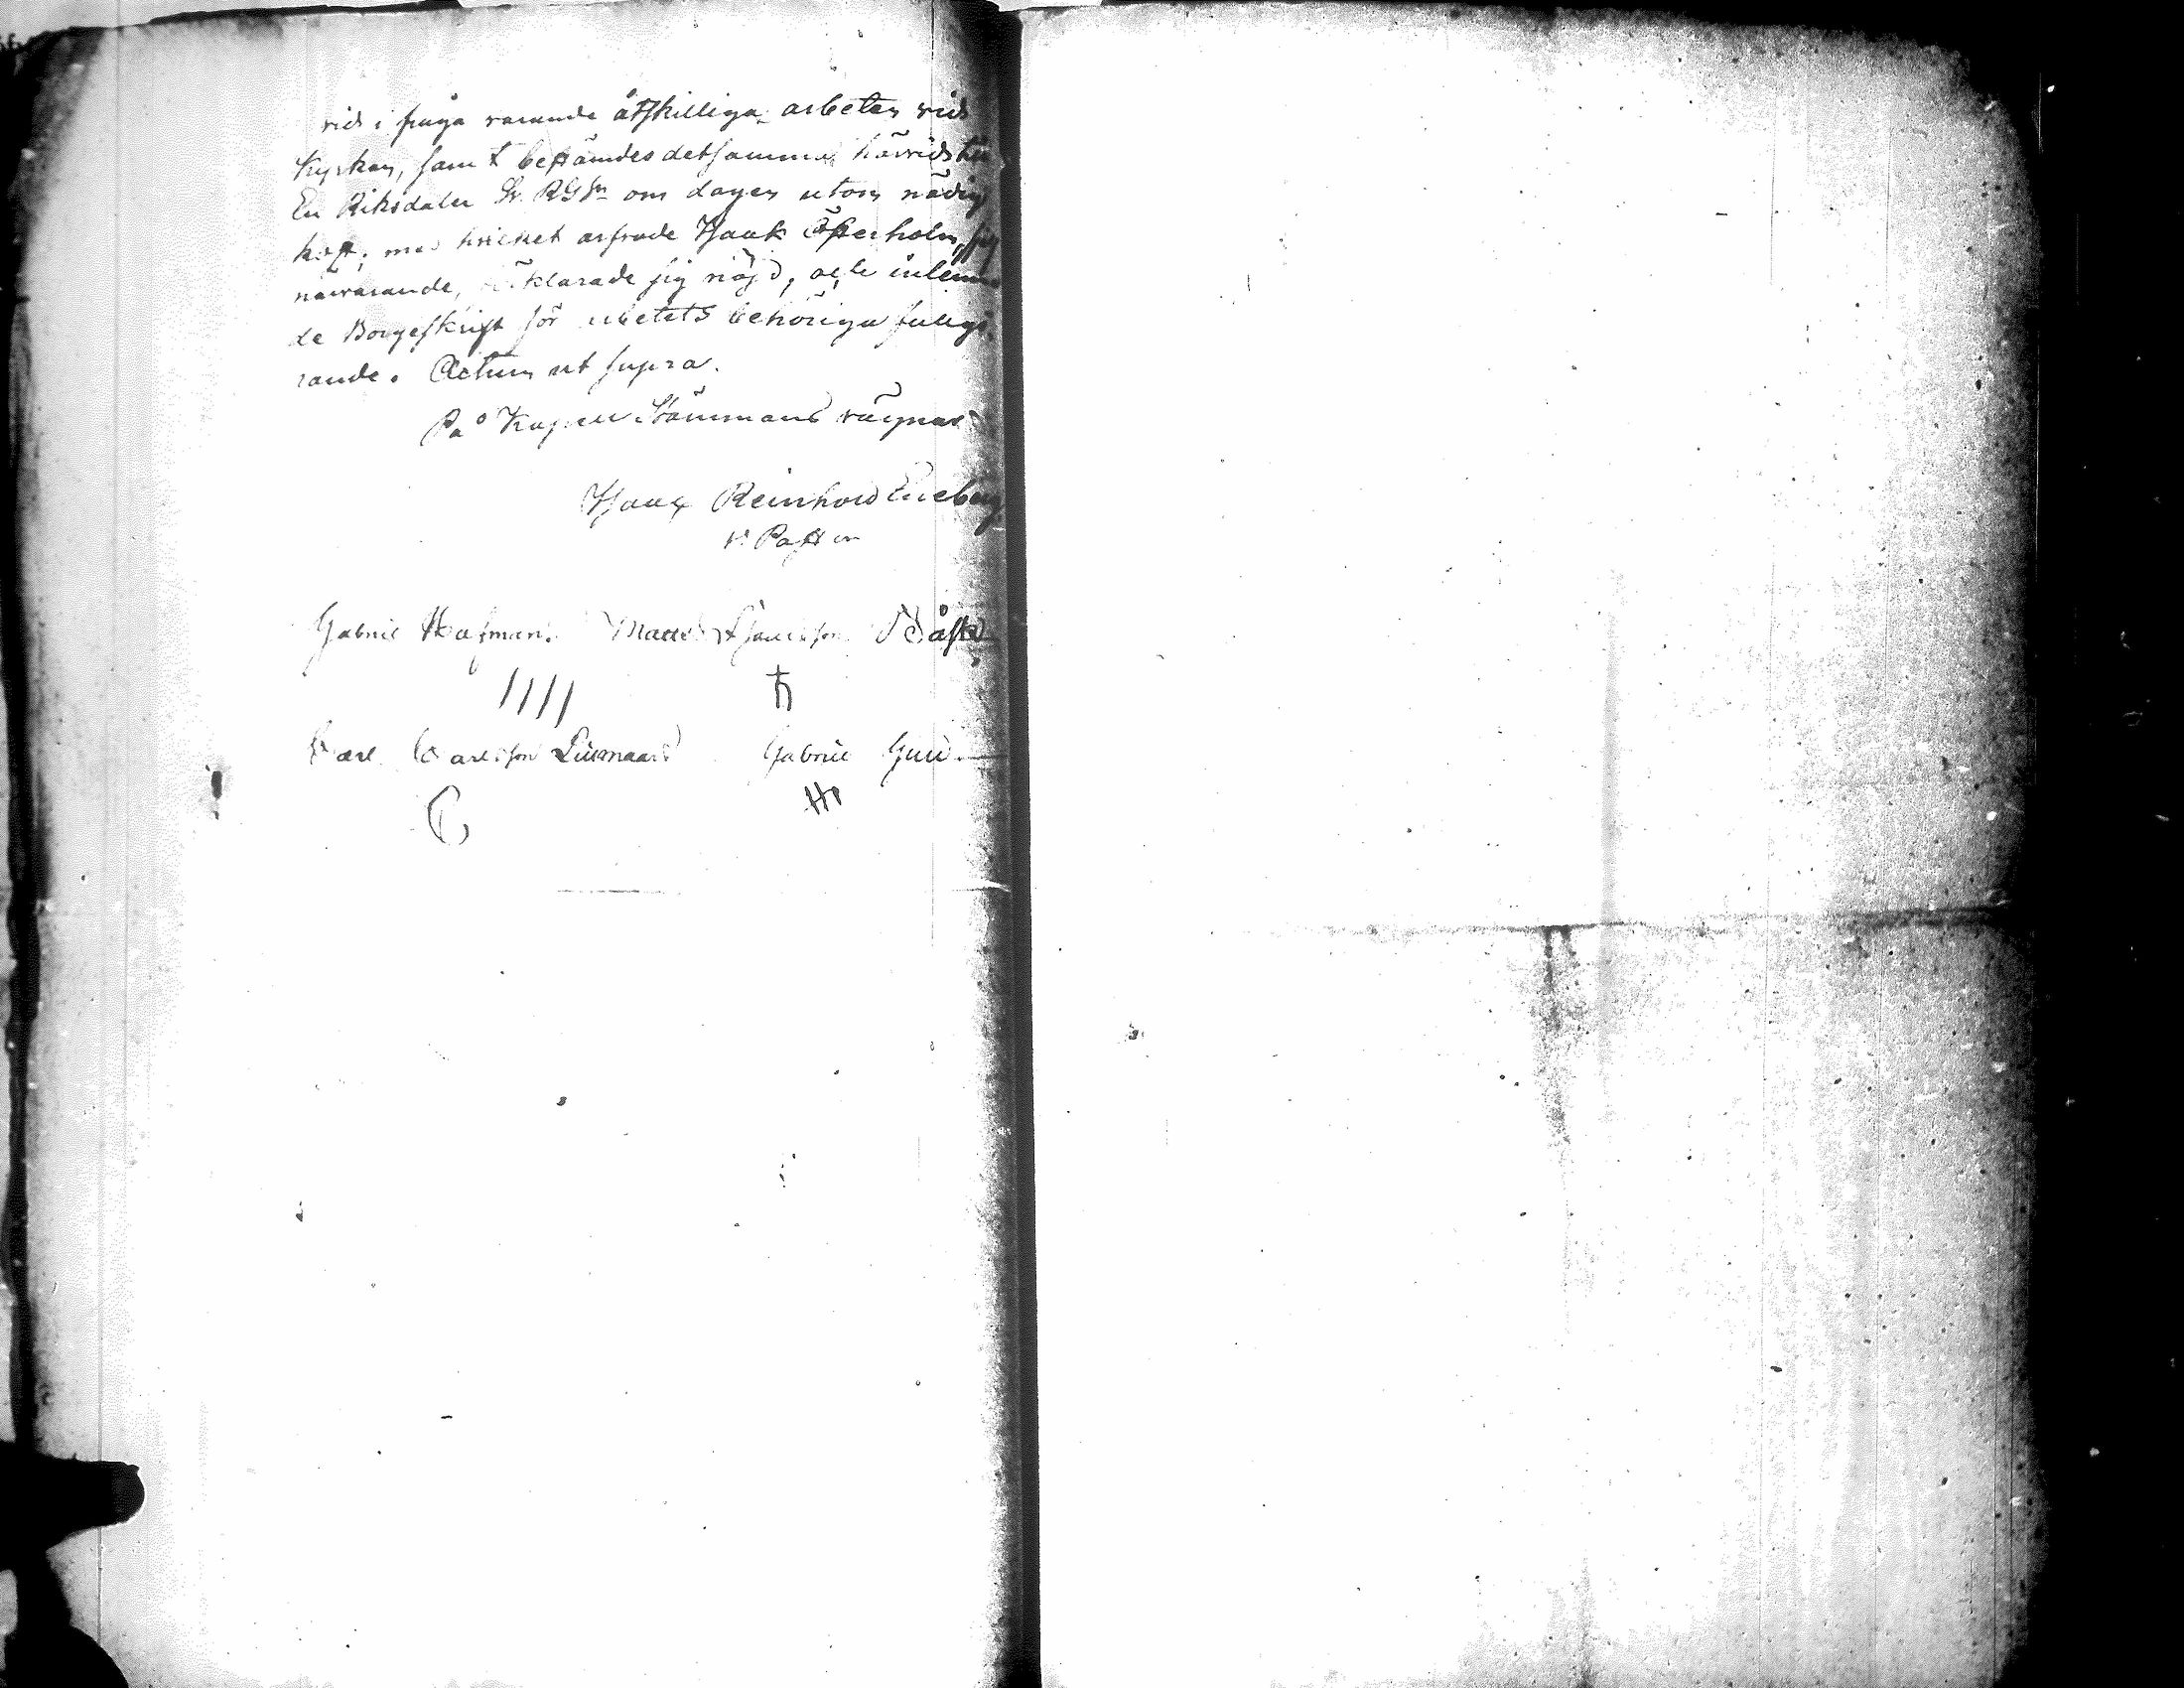 vid i fråga varande åtskilliga arbeten vid
Kyrkan, samt bestämdes detsamma härvid till
En Riksdaler Sv. RGSn om dagen utom nådig
kost; med hvilket arfvode Isaak Österholm, sig
närvarande, förklarade sig nöjd, och inlemna
de Borgesskrift för arbetets behöriga fullgö
rande. Actum ut supra.
På Kapell Stämmans vägnar
Isaac Reinhold Eneberg
v. Pastor
Gabriel Hafman. Matts Isacsson Båsk
Carl Carlsson Liismaar Gabriel